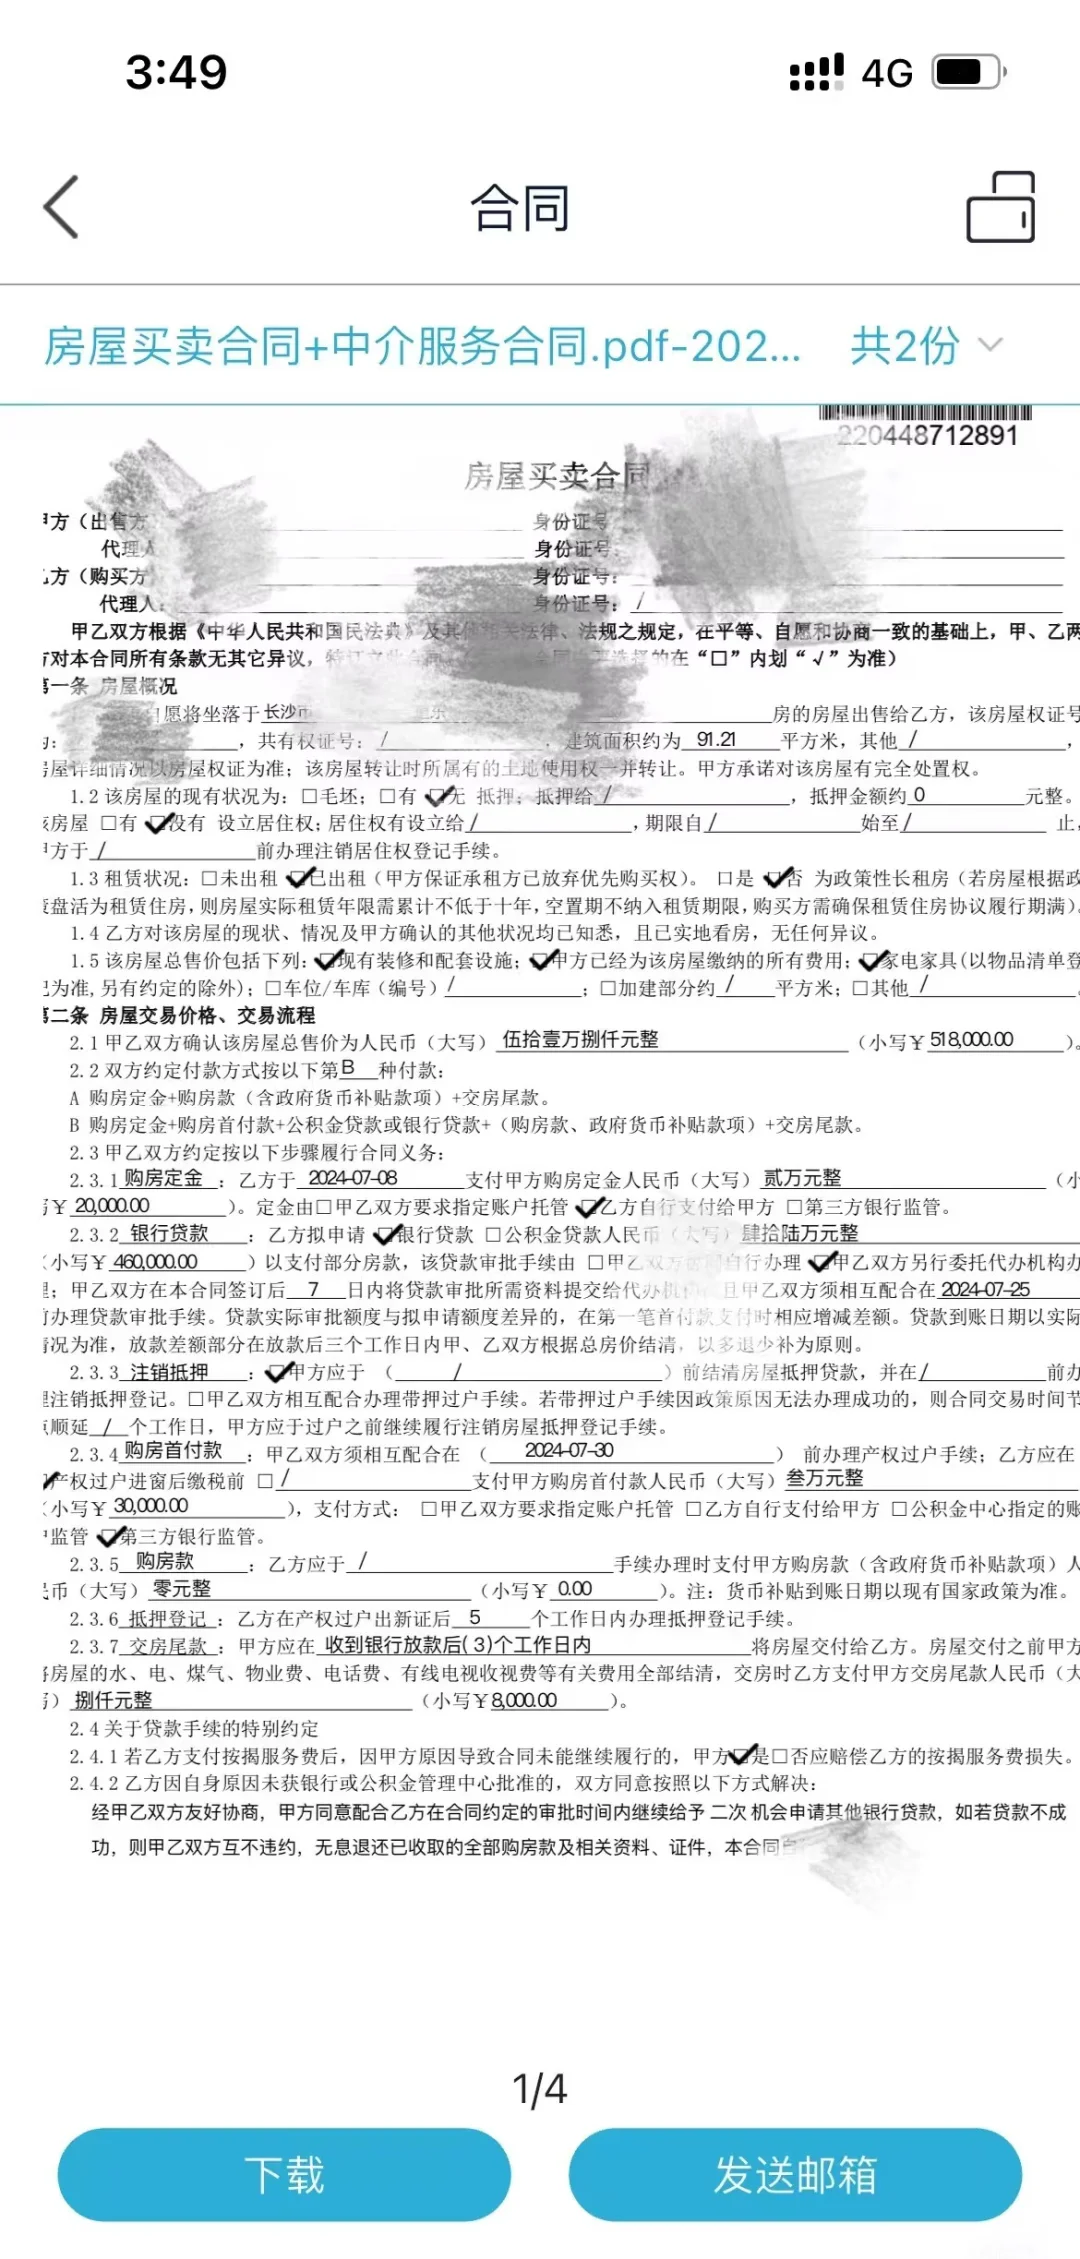 3:49
4G
合同
房屋买卖合同+中介服务合同.pdf-202... 共2份
220448712891
房屋买卖合同
方（出售方 身份证号
代理人 身份证号：
方（购买方 身份证号：
代理人： 身份证号：/
甲乙双方根据《中华人民共和国民法典》及其他相关法律、法规之规定，在平等、自愿和协商一致的基础上，甲、乙两
方对本合同所有条款无其它异议， 的在“□”内划“√”为准）
第一条 房屋概况
自愿将坐落于长沙市 房的房屋出售给乙方，该房屋权证号
为： ，共有权证号：/ ，建筑面积约为 91.21 平方米，其他 / ，
房屋详细情况以房屋权证为准；该房屋转让时所属有的土地使用权一并转让。甲方承诺对该房屋有完全处置权。
1.2 该房屋的现有状况为：□毛坯；□有 ☑无 抵押；抵押给 / ，抵押金额约 0 元整。
该房屋 □有 ☑没有 设立居住权；居住权有设立给 / ，期限自 / 始至 / 止，
甲方于 / 前办理注销居住权登记手续。
1.3 租赁状况：□未出租 ☑已出租（甲方保证承租方已放弃优先购买权）。 口是 ☑否 为政策性长租房（若房屋根据政
策盘活为租赁住房，则房屋实际租赁年限需累计不低于十年，空置期不纳入租赁期限，购买方需确保租赁住房协议履行期满）。
1.4 乙方对该房屋的现状、情况及甲方确认的其他状况均已知悉，且已实地看房，无任何异议。
1.5 该房屋总售价包括下列：☑现有装修和配套设施；☑甲方已经为该房屋缴纳的所有费用；☑家电家具(以物品清单登
记为准，另有约定的除外)；□车位/车库（编号）/ ；□加建部分约 / 平方米；□其他 / 。
第二条 房屋交易价格、交易流程
2.1 甲乙双方确认该房屋总售价为人民币（大写） 伍拾壹万捌仟元整 （小写￥518,000.00 ）。
2.2 双方约定付款方式按以下第 B 种付款：
A 购房定金+购房款（含政府货币补贴款项）+交房尾款。
B 购房定金+购房首付款+公积金贷款或银行贷款+（购房款、政府货币补贴款项）+交房尾款。
2.3 甲乙双方约定按以下步骤履行合同义务：
2.3.1 购房定金 ：乙方于 2024-07-08 支付甲方购房定金人民币（大写） 贰万元整 （小
写￥ 20,000.00 ）。定金由□甲乙双方要求指定账户托管 ☑乙方自行支付给甲方 □第三方银行监管。
2.3.2 银行贷款 ：乙方拟申请 ☑银行贷款 □公积金贷款人民币（大写）肆拾陆万元整
（小写￥ 460,000.00 ）以支付部分房款，该贷款审批手续由 □甲乙双方 自行办理 ☑甲乙双方另行委托代办机构办
理；甲乙双方在本合同签订后 7 日内将贷款审批所需资料提交给代办机构，且甲乙双方须相互配合在 2024-07-25
前办理贷款审批手续。贷款实际审批额度与拟申请额度差异的，在第一笔首付款支付时相应增减差额。贷款到账日期以实际
情况为准，放款差额部分在放款后三个工作日内甲、乙双方根据总房价结清，以多退少补为原则。
2.3.3 注销抵押 ：☑甲方应于 （ / ）前结清房屋抵押贷款，并在 / 前办
理注销抵押登记。□甲乙双方相互配合办理带押过户手续。若带押过户手续因政策原因无法办理成功的，则合同交易时间节
点顺延 / 个工作日，甲方应于过户之前继续履行注销房屋抵押登记手续。
2.3.4 购房首付款 ：甲乙双方须相互配合在 （ 2024-07-30 ） 前办理产权过户手续；乙方应在
☑产权过户进窗后缴税前 □ / 支付甲方购房首付款人民币（大写） 叁万元整
（小写￥ 30,000.00 ），支付方式： □甲乙双方要求指定账户托管 □乙方自行支付给甲方 □公积金中心指定的账
户监管 ☑第三方银行监管。
2.3.5 购房款 ：乙方应于 / 手续办理时支付甲方购房款（含政府货币补贴款项）人
民币（大写） 零元整 （小写￥ 0.00 ）。注：货币补贴到账日期以现有国家政策为准。
2.3.6 抵押登记 ：乙方在产权过户出新证后 5 个工作日内办理抵押登记手续。
2.3.7 交房尾款 ：甲方应在 收到银行放款后( 3)个工作日内 将房屋交付给乙方。房屋交付之前甲方
将房屋的水、电、煤气、物业费、电话费、有线电视收视费等有关费用全部结清，交房时乙方支付甲方交房尾款人民币（大
写） 捌仟元整 （小写￥8,000.00 ）。
2.4 关于贷款手续的特别约定
2.4.1 若乙方支付按揭服务费后，因甲方原因导致合同未能继续履行的，甲方☑是□否应赔偿乙方的按揭服务费损失。
2.4.2 乙方因自身原因未获银行或公积金管理中心批准的，双方同意按照以下方式解决：
经甲乙双方友好协商，甲方同意配合乙方在合同约定的审批时间内继续给予 二次 机会申请其他银行贷款，如若贷款不成
功，则甲乙双方互不违约，无息退还已收取的全部购房款及相关资料、证件，本合同
1/4
下载
发送邮箱